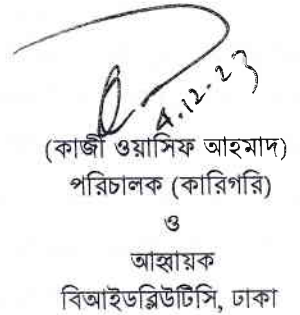 4.12.23
(কাজী ওয়াসিফ আহমাদ)
পরিচালক (কারিগরি)
ও
আহ্বায়ক
বিআইডব্লিউটিসি, ঢাকা